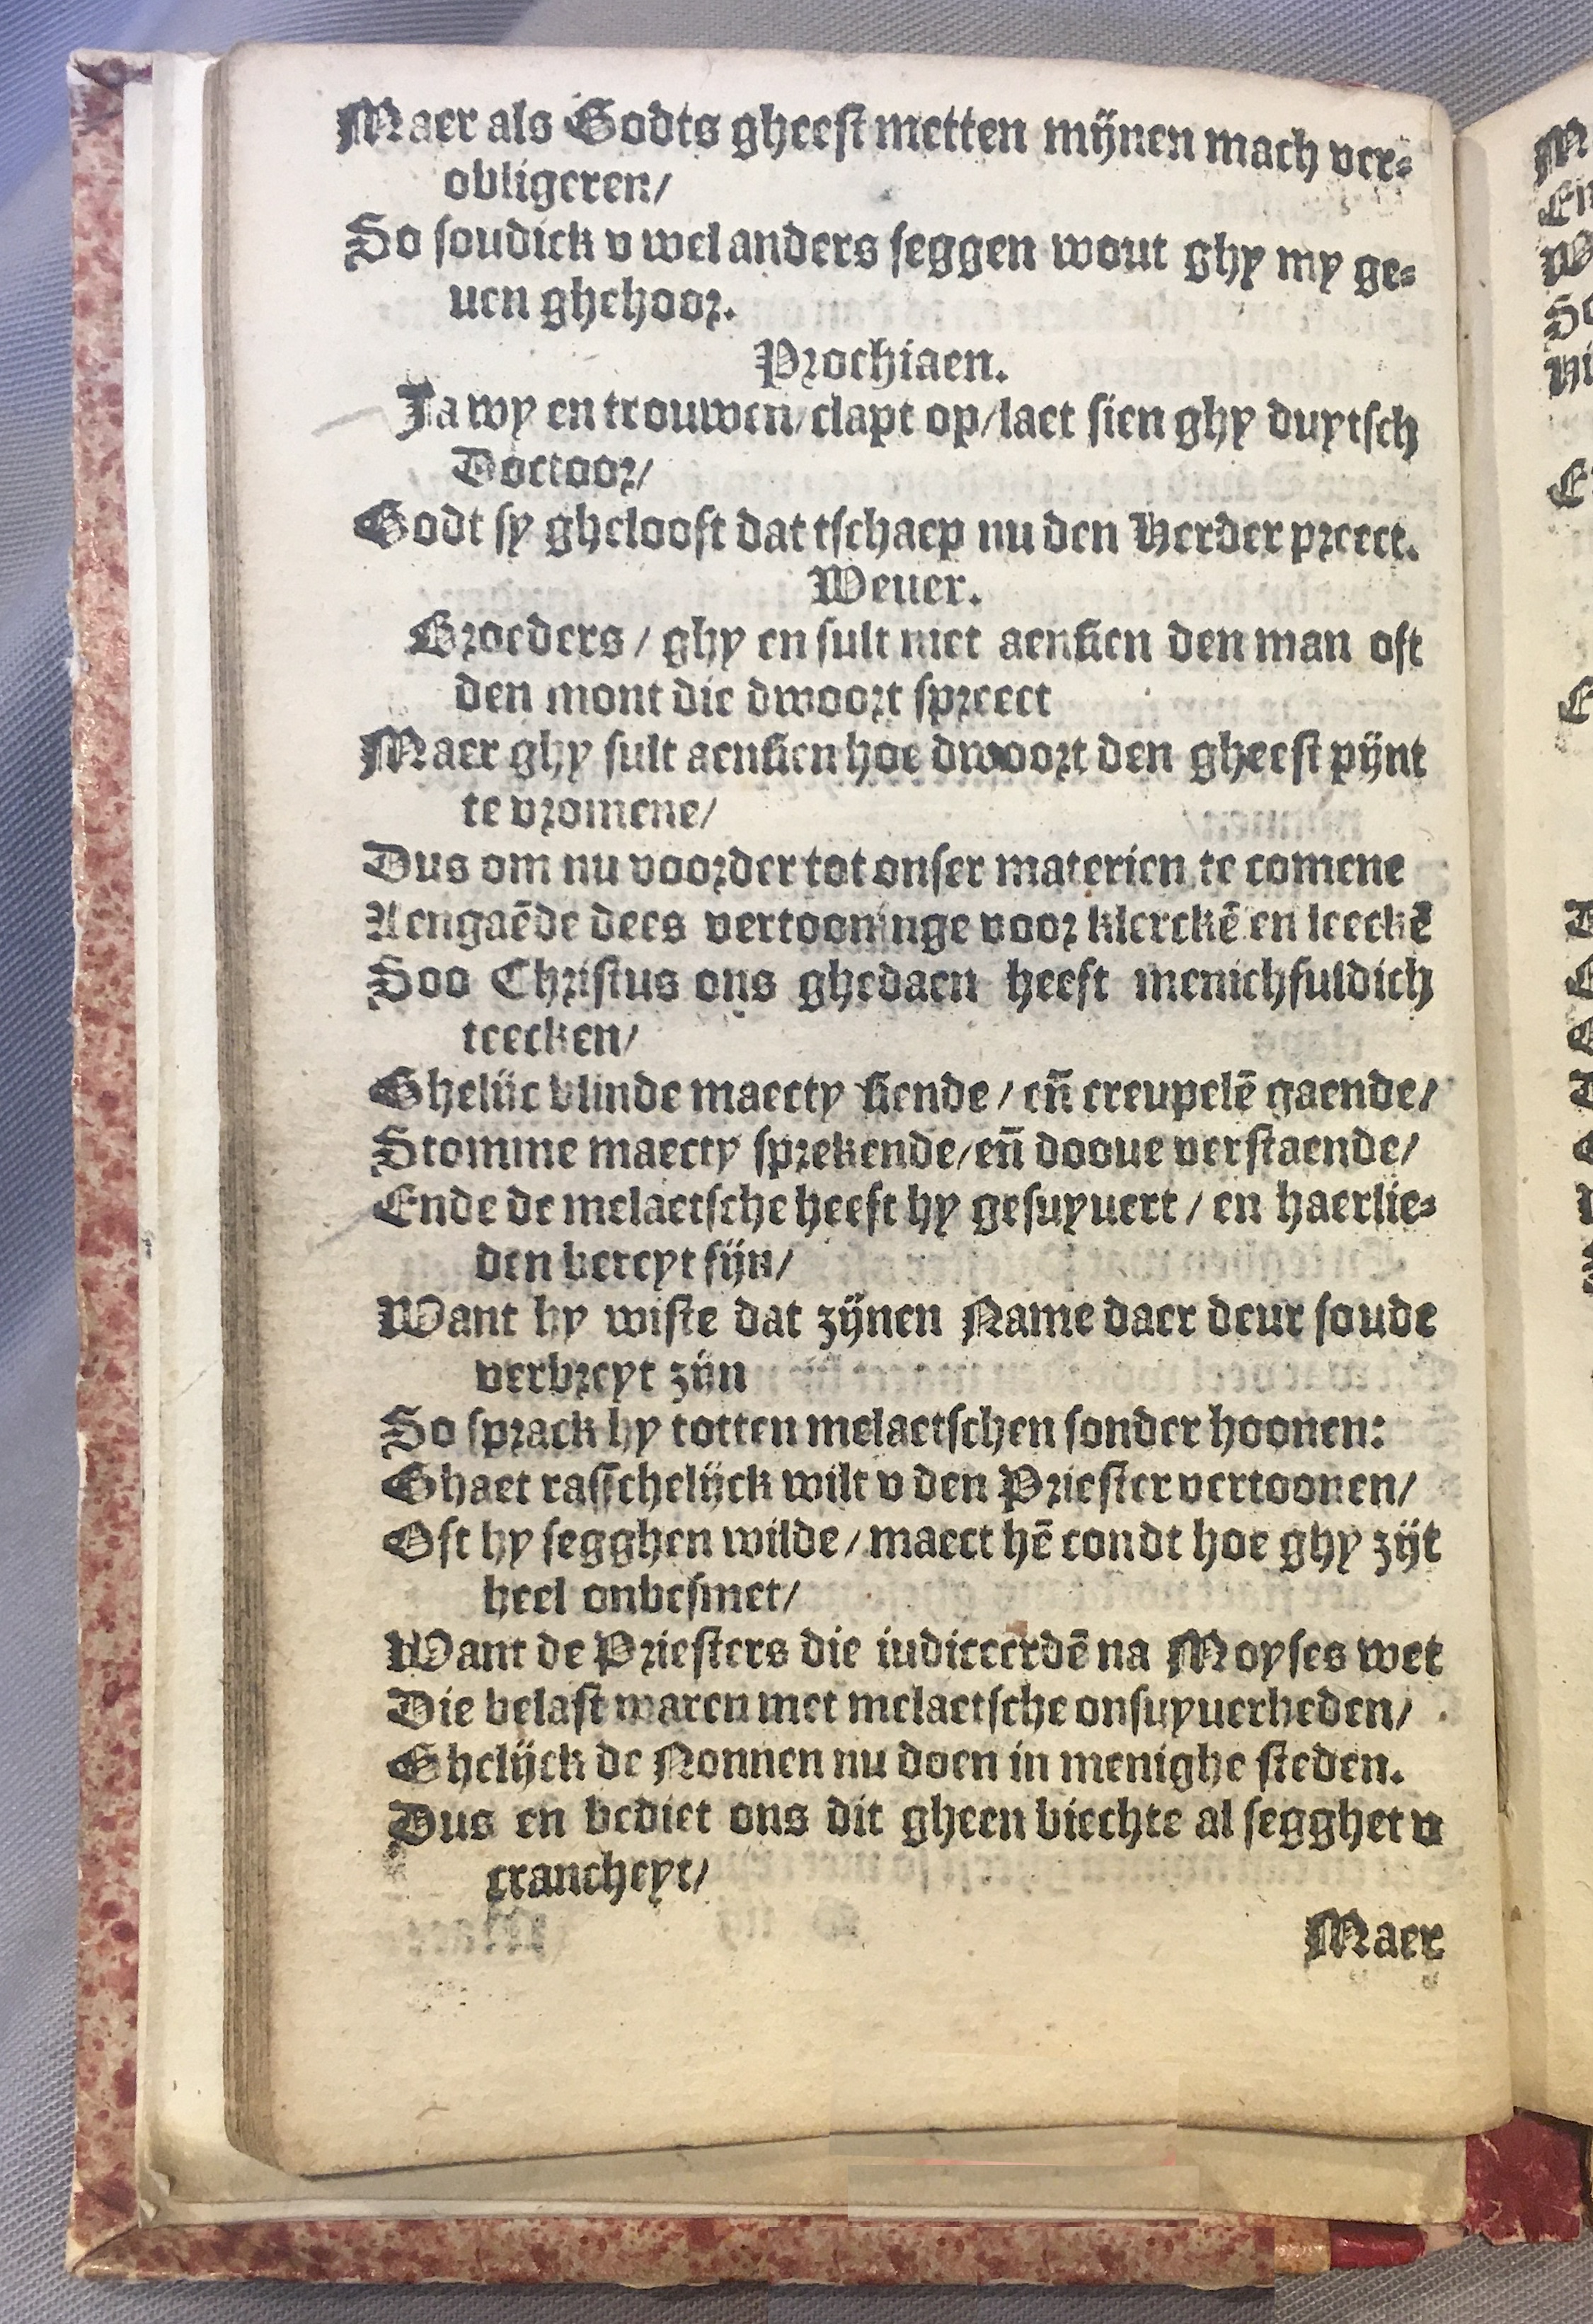 Maer als Godts gheest metten mijnen mach ver-
obligeren/
So soudick v wel anders seggen wout ghy my ge-
uen ghehoor.
Prochiaen.
Ja wy en trouwen/clapt op/laet sien ghy duytsch
Doctoor/
Godt sy gheloost dat tschaep nu den Herder preect.
Weuer.
Broeders / ghy en sult niet aensien den man oft
den mont die dwoort spreect
Maer ghy sult aensien hoe dwoort den gheest pijnt
te vromene/
Dus om nu voorder tot onser materien te comene
Aengaēde dees vertooninge voor klerckē en leeckē
Soo Christus ons ghedaen heeft menichfuldich
teecken/
Ghelijc blinde maecty siende / eñ creupelē gaende/
Stomme maecty sprekende/eñ dooue verstaende/
Ende de melaetsche heeft hy gesuyuert / en haerlie-
den bereyt sijn/
Want hy wiste dat zijnen Name daer deur soude
verbreyt zijn
So sprack hy totten melaetschen sonder hoonen:
Ghaet rasschelijck wilt v den Priester vertoonen/
Oft hy segghen wilde / maect hē condt hoe ghy zijt
heel onbesmet/
Want de Priesters die iudiceerdē na Moyses wet
Die belast waren met melaetsche onsuyuerheden/
Ghelijck de Nonnen nu doen in menighe steden.
Dus en bediet ons dit gheen biechte al segghet v
crancheyt/
Maer